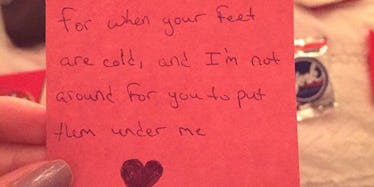 for when your feet
are cold, and I'm not
around for you to put
them under me